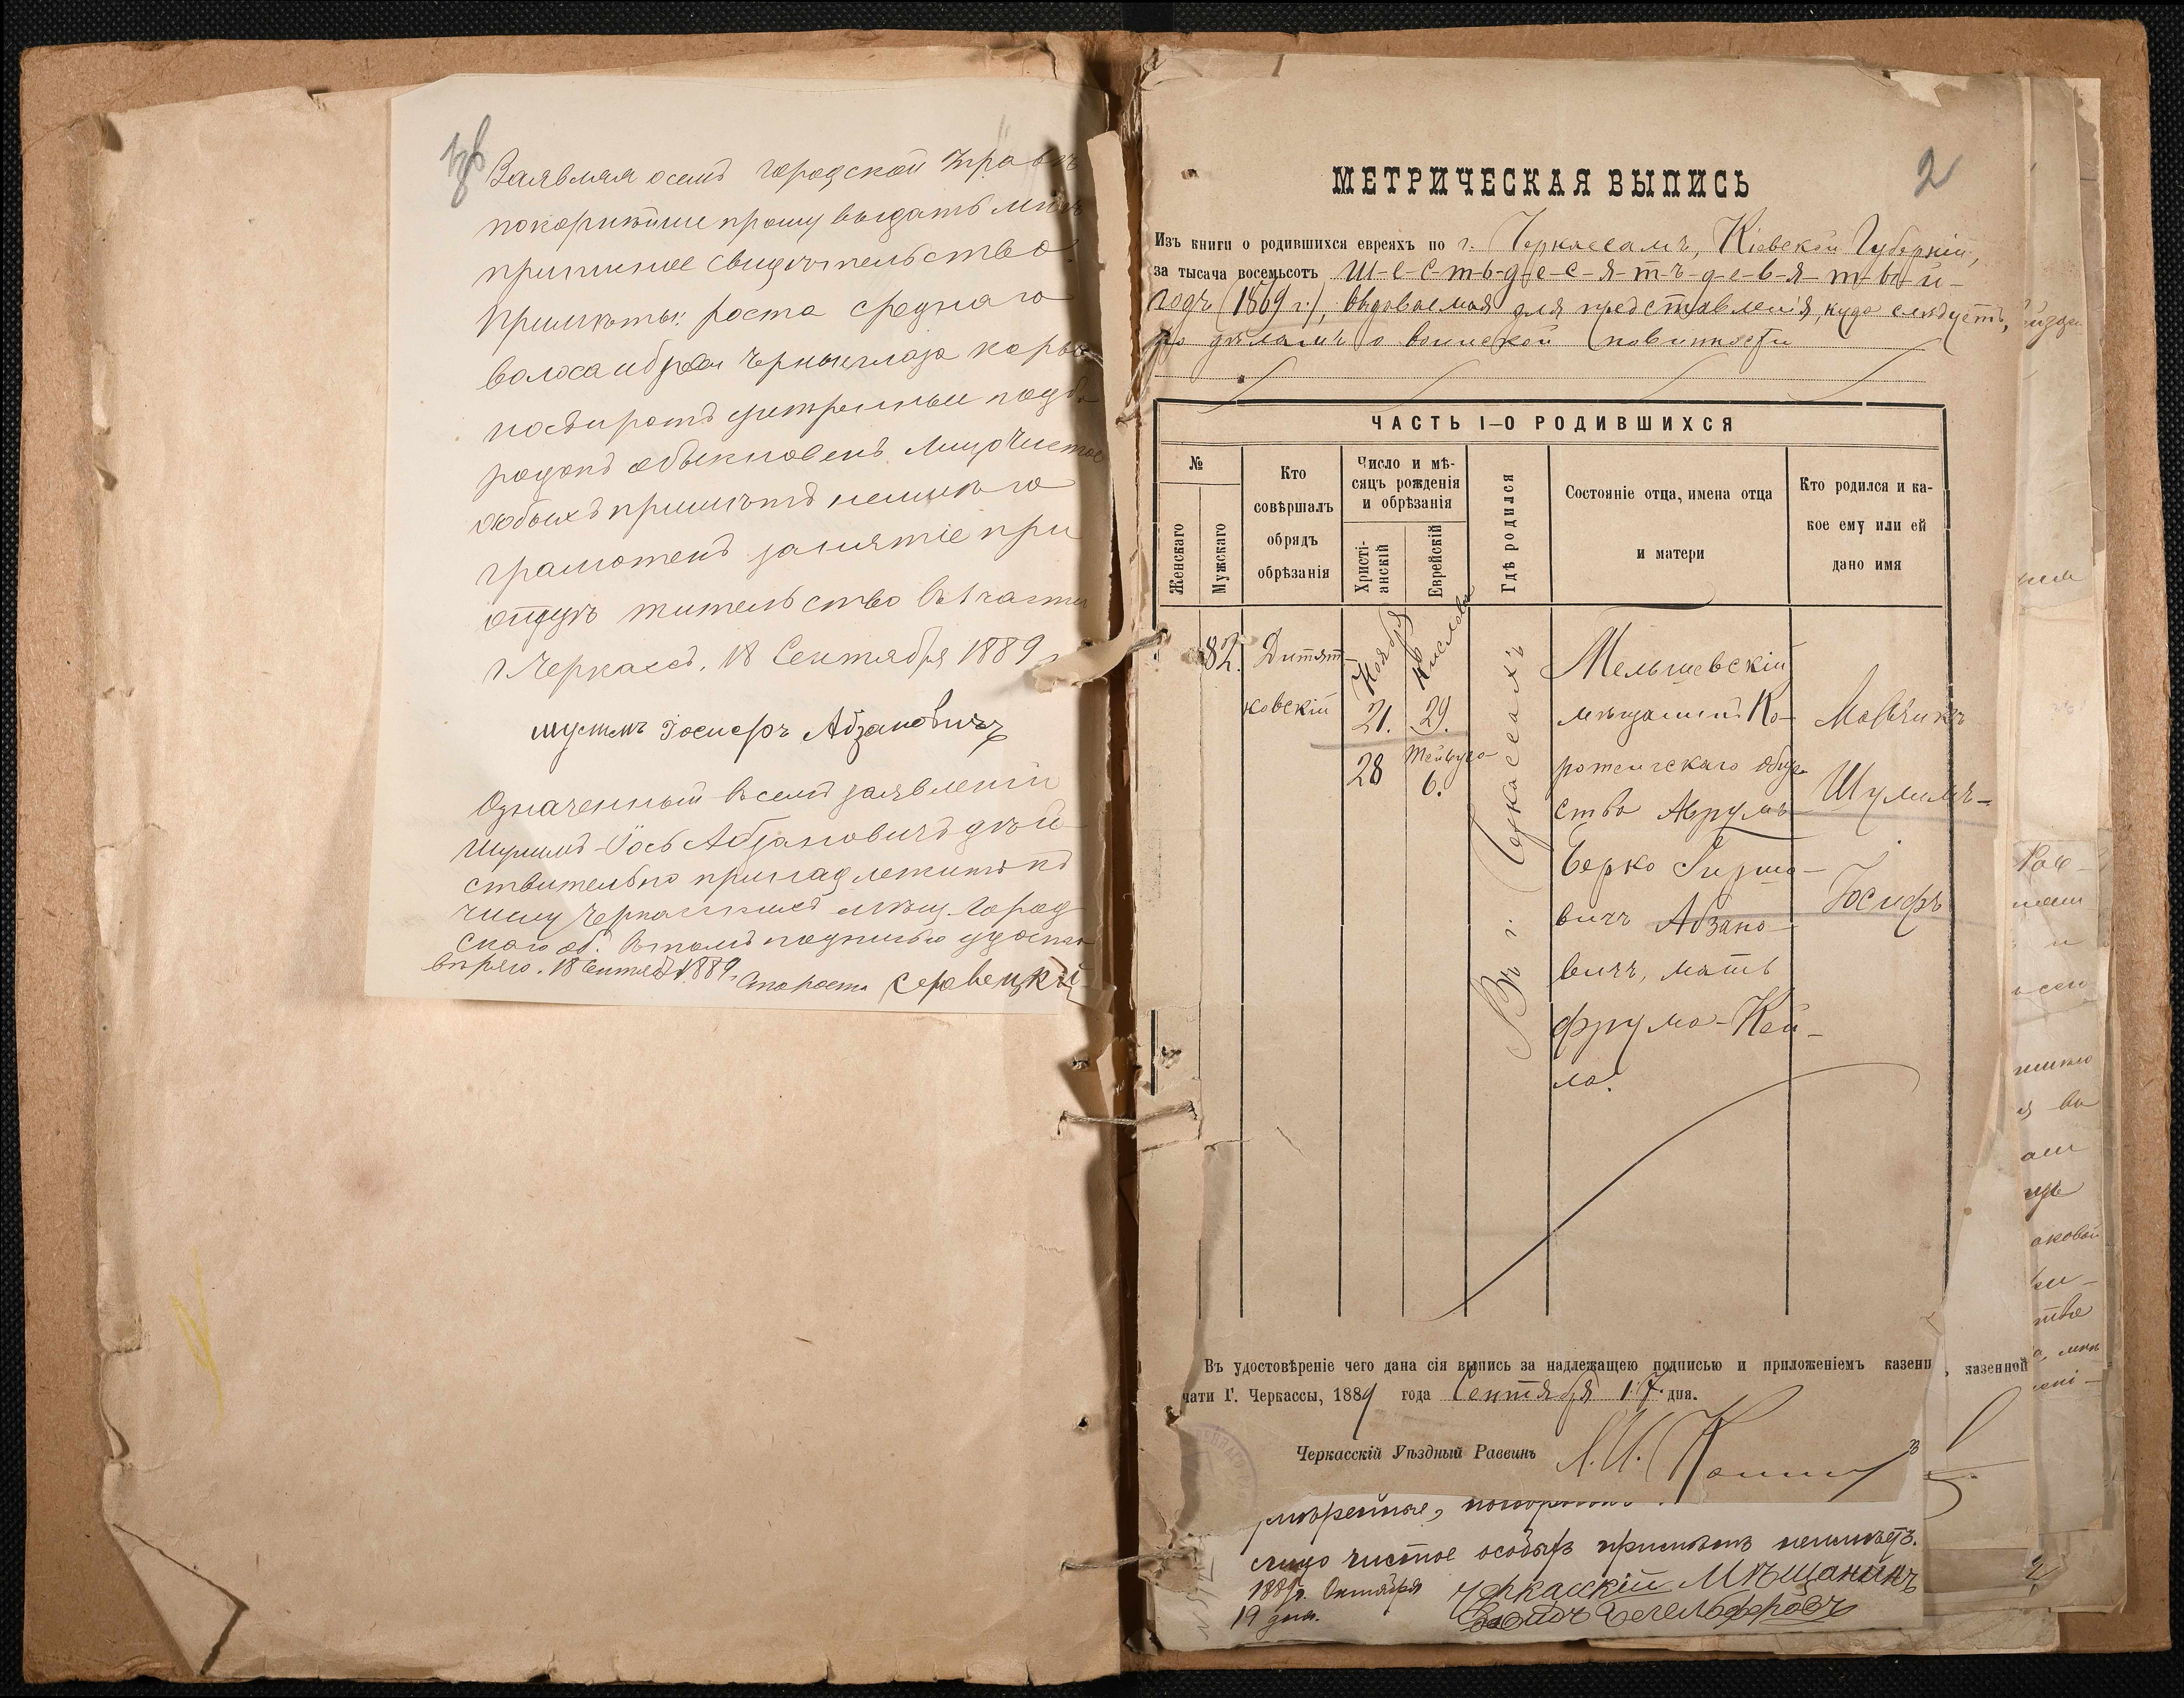 Заявляя о семъ городской Управѣ
покорнѣйше прошу выдать мнѣ
приписное свидѣтельство.
Примѣты: роста средняго
волоса и брови черные глаза карые
носъ и ротъ умѣренные подбо
родокъ обыкновенъ лицо чистое
особыхъ примѣтъ неимѣю
грамотенъ занятіе при
отцѣ жительство въ 1 части
г. Черкассъ. 18 Сентября 1889 г.
Шулимъ Іосифъ Абзановичъ
Означенный въ семъ заявленіи
Шулимъ-Іось Абзановичъ дѣй
ствительно принадлежитъ къ
числу Черкасскихъ мѣщ. город
скаго об. Въ томъ подписью удосто
вѣряю. 18 Сентяб 1889 г. Староста
2
МЕТРИЧЕСКАЯ ВЫПИСЬ
Изъ книги о родившихся евреяхъ по г. Черкассамъ, Кіевской Губерніи,
за тысяча восемьсотъ ш-е-с-т-ь-д-е-с-я-т-ъ-д-е-в-я-т-ы-й-
годъ (1869 г.), выдаваемая для представленія, куда слѣдуетъ,
по дѣламъ о воинской повинности
ЧАСТЬ I–О РОДИВШИХСЯ
№
Женскаго
Мужскаго
Кто
совѣршалъ
обрядъ
обрѣзанія
Число и мѣ-
сяцъ рожденія
и обрѣзанія
Христі-
анскій
Еврейскій
Гдѣ родился
Состояніе отца, имена отца
и матери
Кто родился и ка-
кое ему или ей
дано имя
82.
Дитят
ковскій
Ноября
21.
28
Кислева
29.
Тейвуса
6.
Въ г. Черкассахъ
мѣщанинъ Ко-
ротенскаго обще
ства Аврумъ
Берко Гиршо-
вичъ Абзано-
вичъ, мать
Фрума-Кей-
ла.
Мальчикъ
Шулимъ-
Іосифъ
Въ удостовѣреніе чего дана сія выпись за надлежащею подписью и приложеніемъ казенн казенной
чати Г. Черкассы, 1889 года Сентября 17 дня.
Черкасскій Уѣздный Раввинъ
лицо чистое особыхъ примѣтъ неимѣетъ.
1889 г. Октября Черкасскій Мѣщанинъ
19 дня.